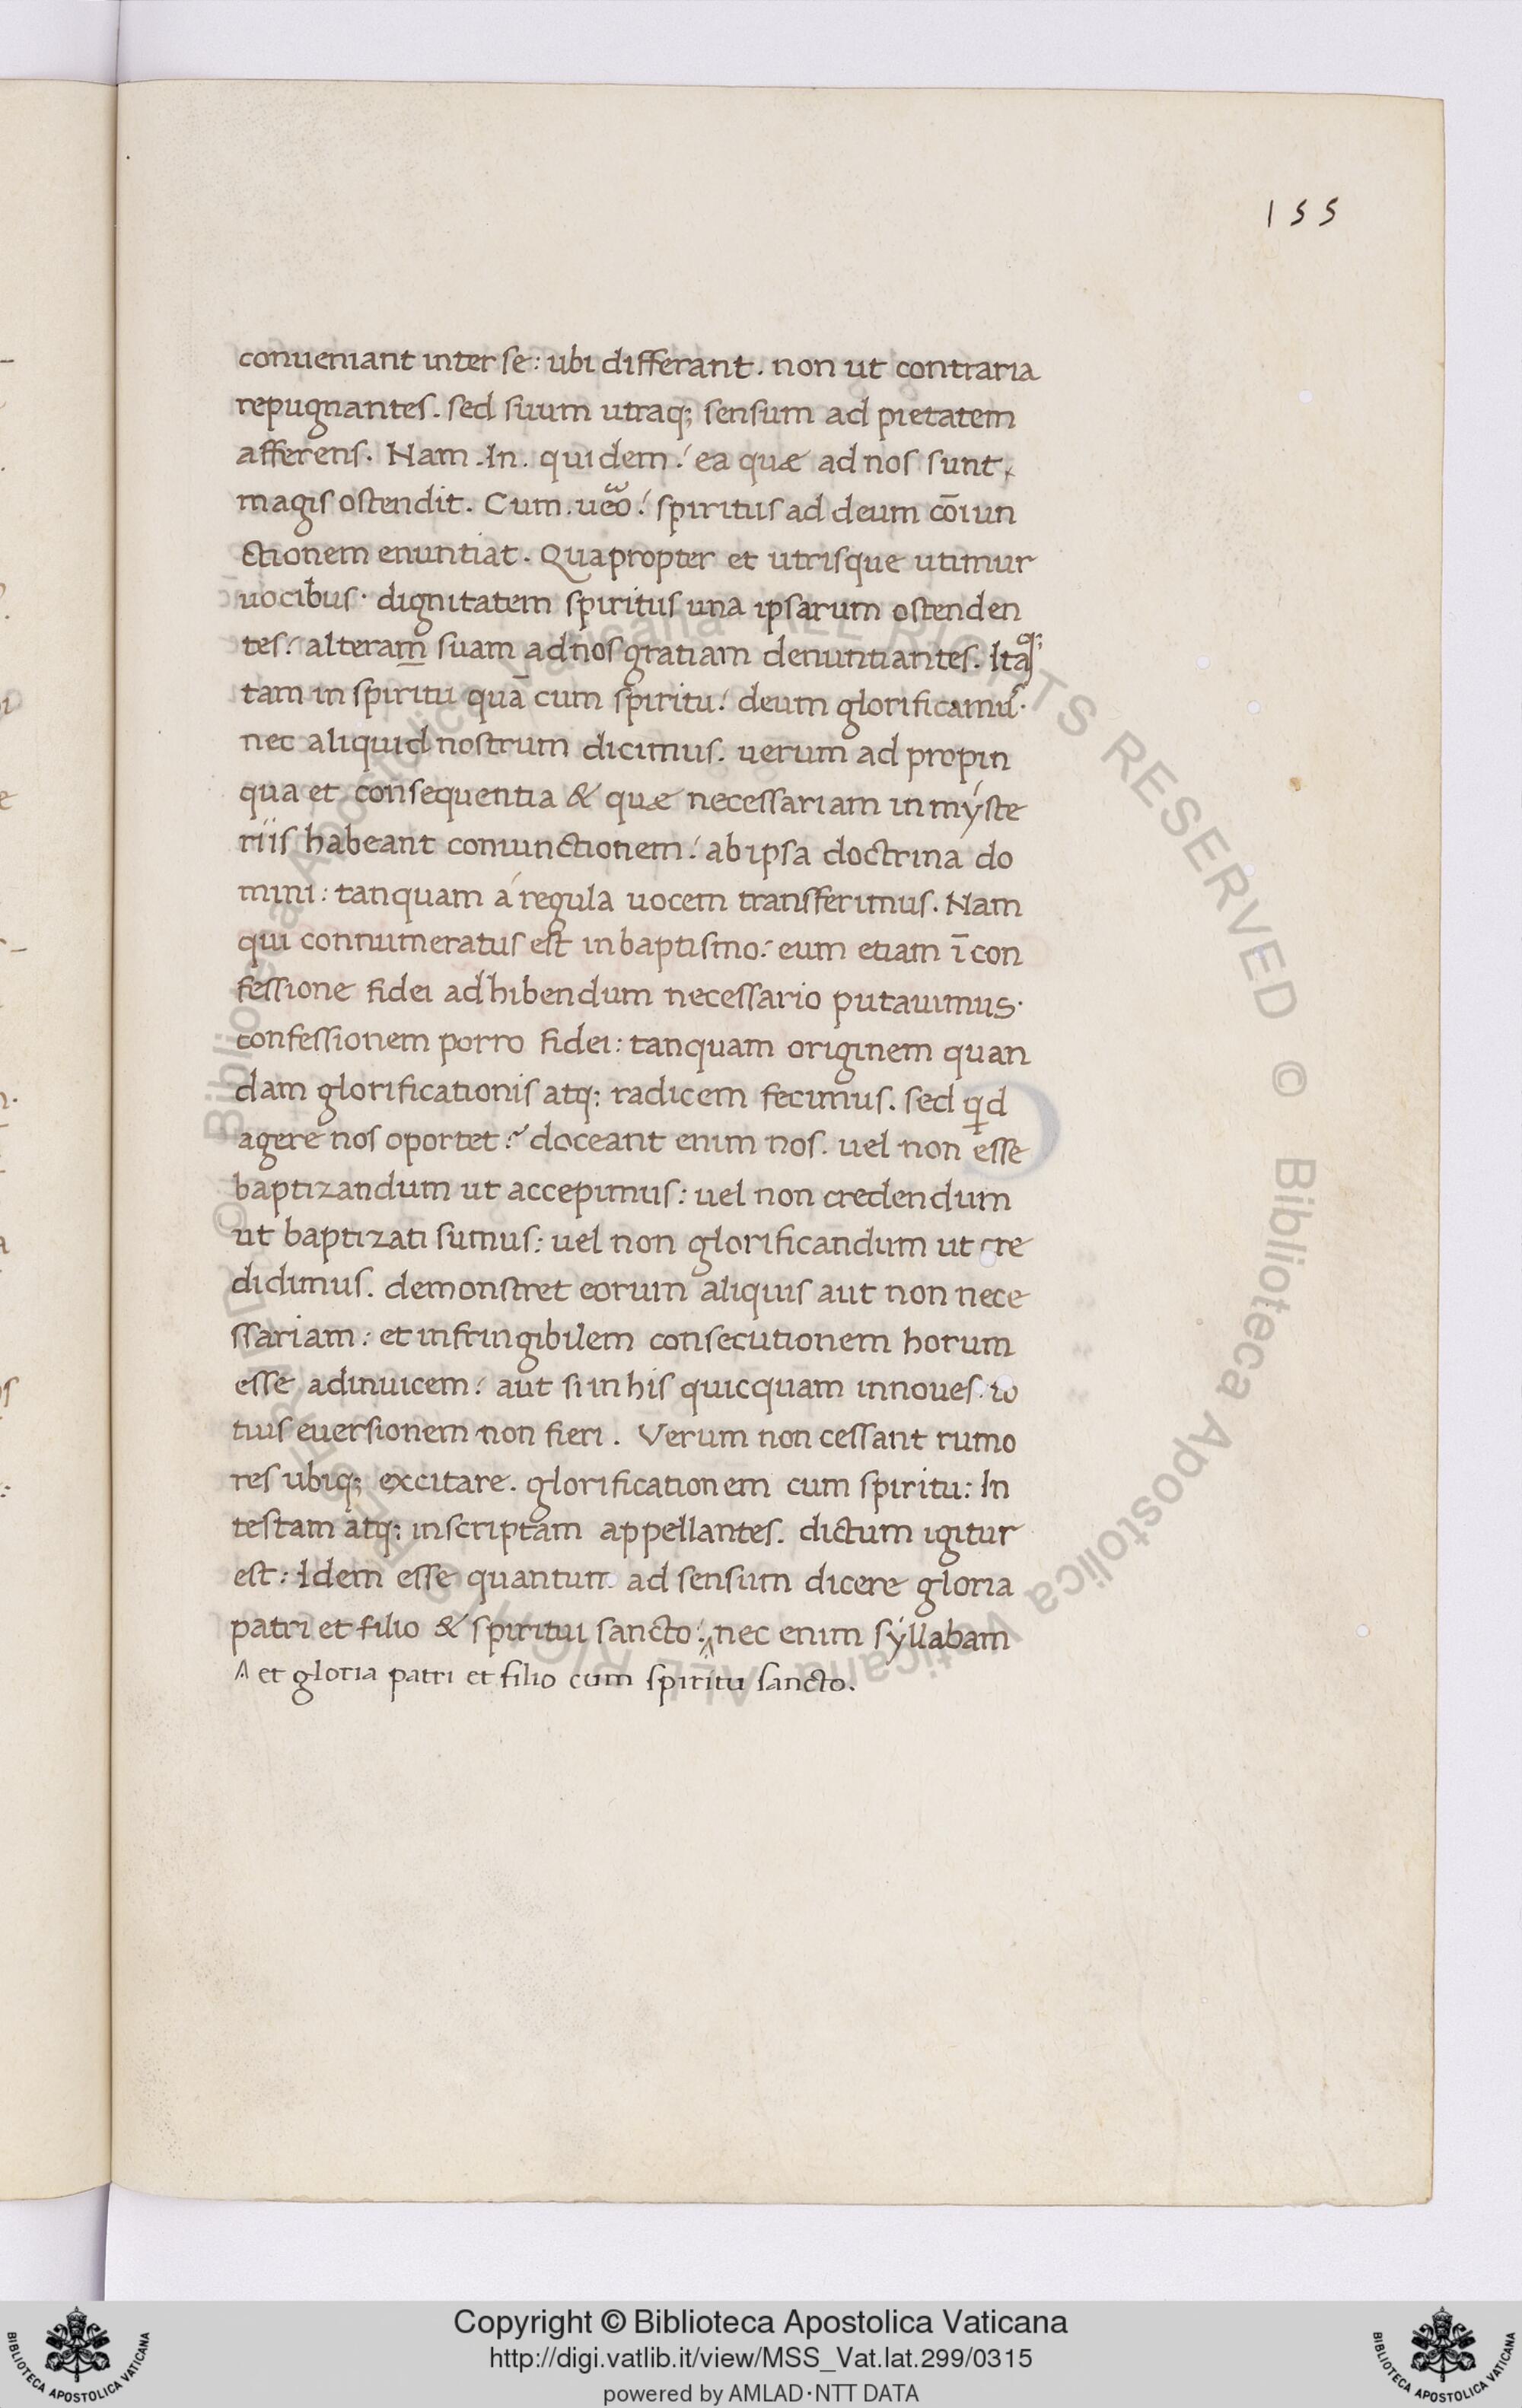 155
conueniant inter se: ubi differant. non ut contraria
repugnantes. sed suum utraq; sensum ad pietatem
afferens. Nam .In. quidem: ea quæ ad nos sunt,
magis ostendit. Cum. ueo: spiritus ad deum cōiun
ctionem enuntiat. Quapropter et utrisque utimur
uocibus. dignitatem spiritus una ipsarum ostenden
tes: alteram suam ad nos gratiam denuntiantes. Itaq;
tam in spiritu quā cum spiritu: deum glorificamus.
nec aliquid nostrum dicimus. uerum ad propin
qua et consequentia & quæ necessariam in mýste
riis habeant coniunctionem: ab ipsa doctrina do
mini: tanquam á regula uocem transferimus. Nam
qui connumeratus est in baptismo: eum etiam ī con
fessione fidei adhibendum necessario putauimus.
confessionem porro fidei: tanquam originem quan
dam glorificationis atq: radicem fecimus. sed qd
agere nos oportet? doceant enim nos. uel non esse
baptizandum ut accepimus: uel non credendum
ut baptizati sumus: uel non glorificandum ut cre
didimus. demonstret eorum aliquis aut non nece
ssariam: et infringibilem consecutionem horum
esse adinuicem: aut si in his quicquam innoues. to
tius euersionem non fieri. Verum non cessant rumo
res ubiq; excitare. glorificationem cum spiritu: In
testam atq: inscriptam appellantes. dictum igitur
est: Idem esse quantum ad sensum dicere gloria
patri et filio & spiritui sancto: nec enim sýllabam
et gloria patri et filio cum spiritu sancto.
© Biblioteca Apostolica Vaticana ALL RIGHTS RESERVED
© Biblioteca Apostolica Vaticana ALL RIGHTS RESERVED
Copyright © Biblioteca Apostolica Vaticana
http://digi.vatlib.it/view/MSS_Vat.lat.299/0315
powered by AMLAD·NTT DATA
BIBLIOTECA APOSTOLICA VATICANA
BIBLIOTECA APOSTOLICA VATICANA